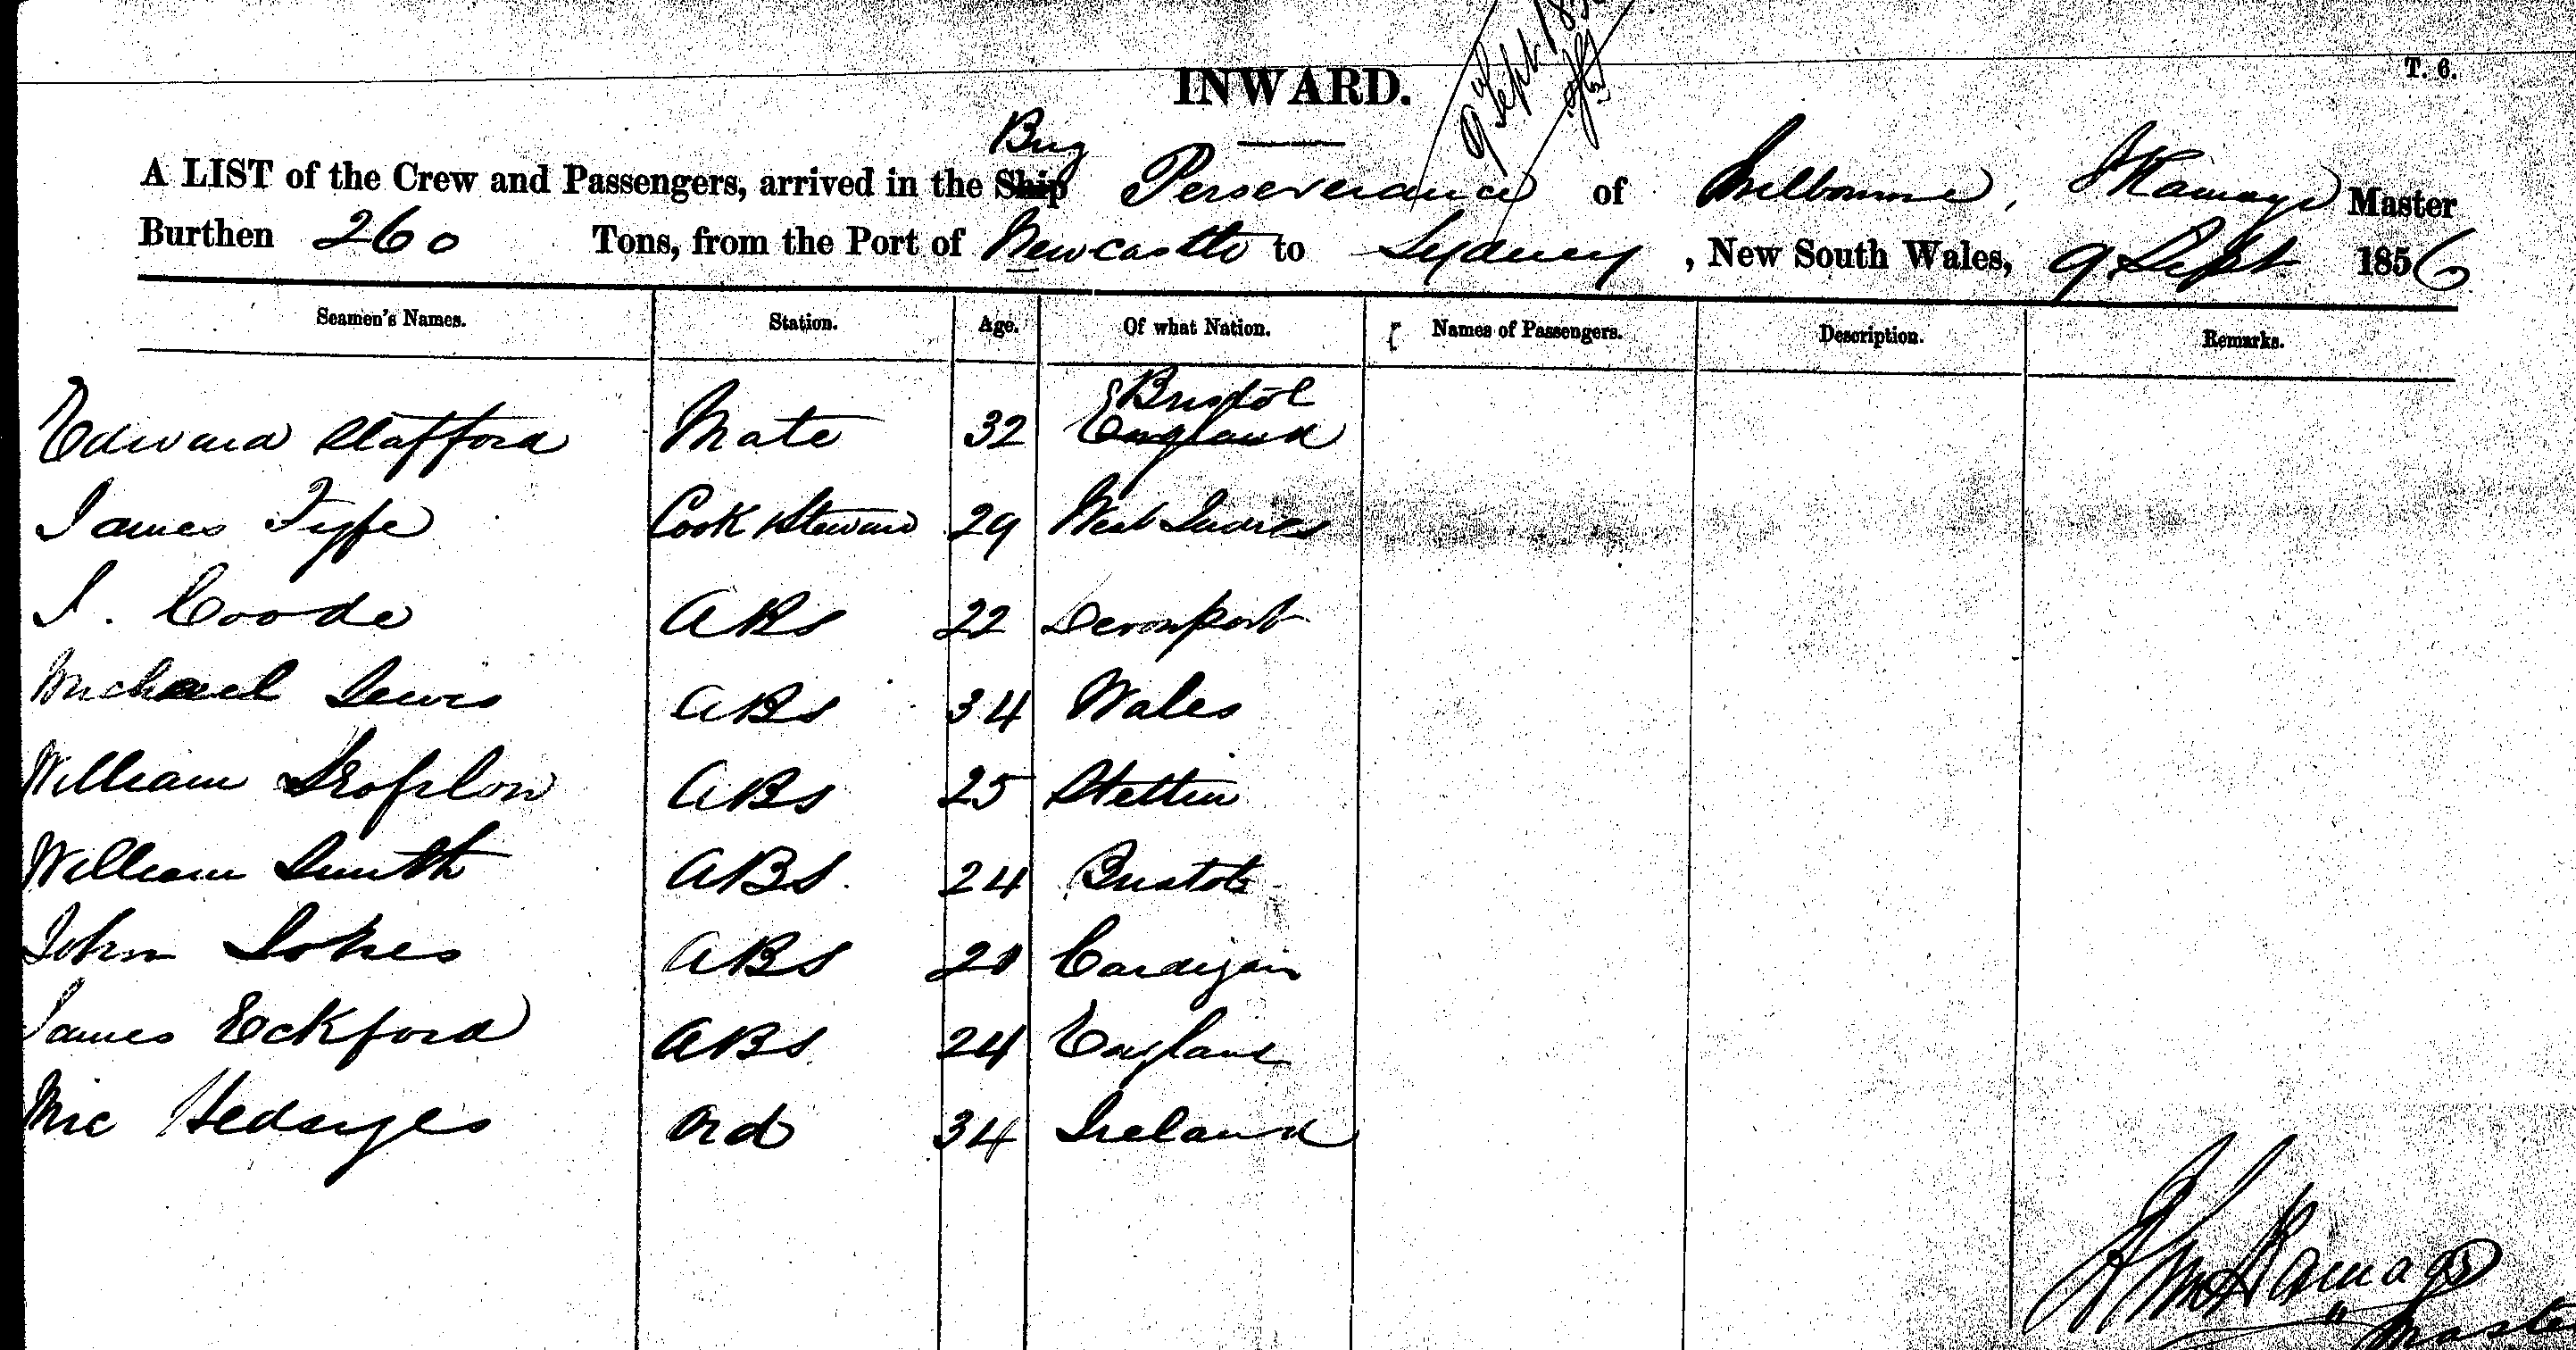 INWARD.
9 Sept 185
T. 6.
Brig
A LIST of the Crew and Passengers, arrived in the Ship Perseverance of Melbourne, Ramage Master
Burthen 260 Tons, from the Port of Newcastle to Sydney, New South Wales, 9 Sept 1856
Seamen's Names. Station. Age. Of what Nation. Names of Passengers. Description. Remarks.
Bristol
Edward Stafford Mate 32 England
James Fyfe Cook & Steward 29 West Indies
J. Coode ABs 22 Devonport
Michael Lewis ABs 34 Wales
William ABs 25 Stettin
William Smith ABS. 24 Bristol
John ABS Cardigan
James Eckford ABS 24 England
Mic Ord 34 Ireland
Ramage
Master